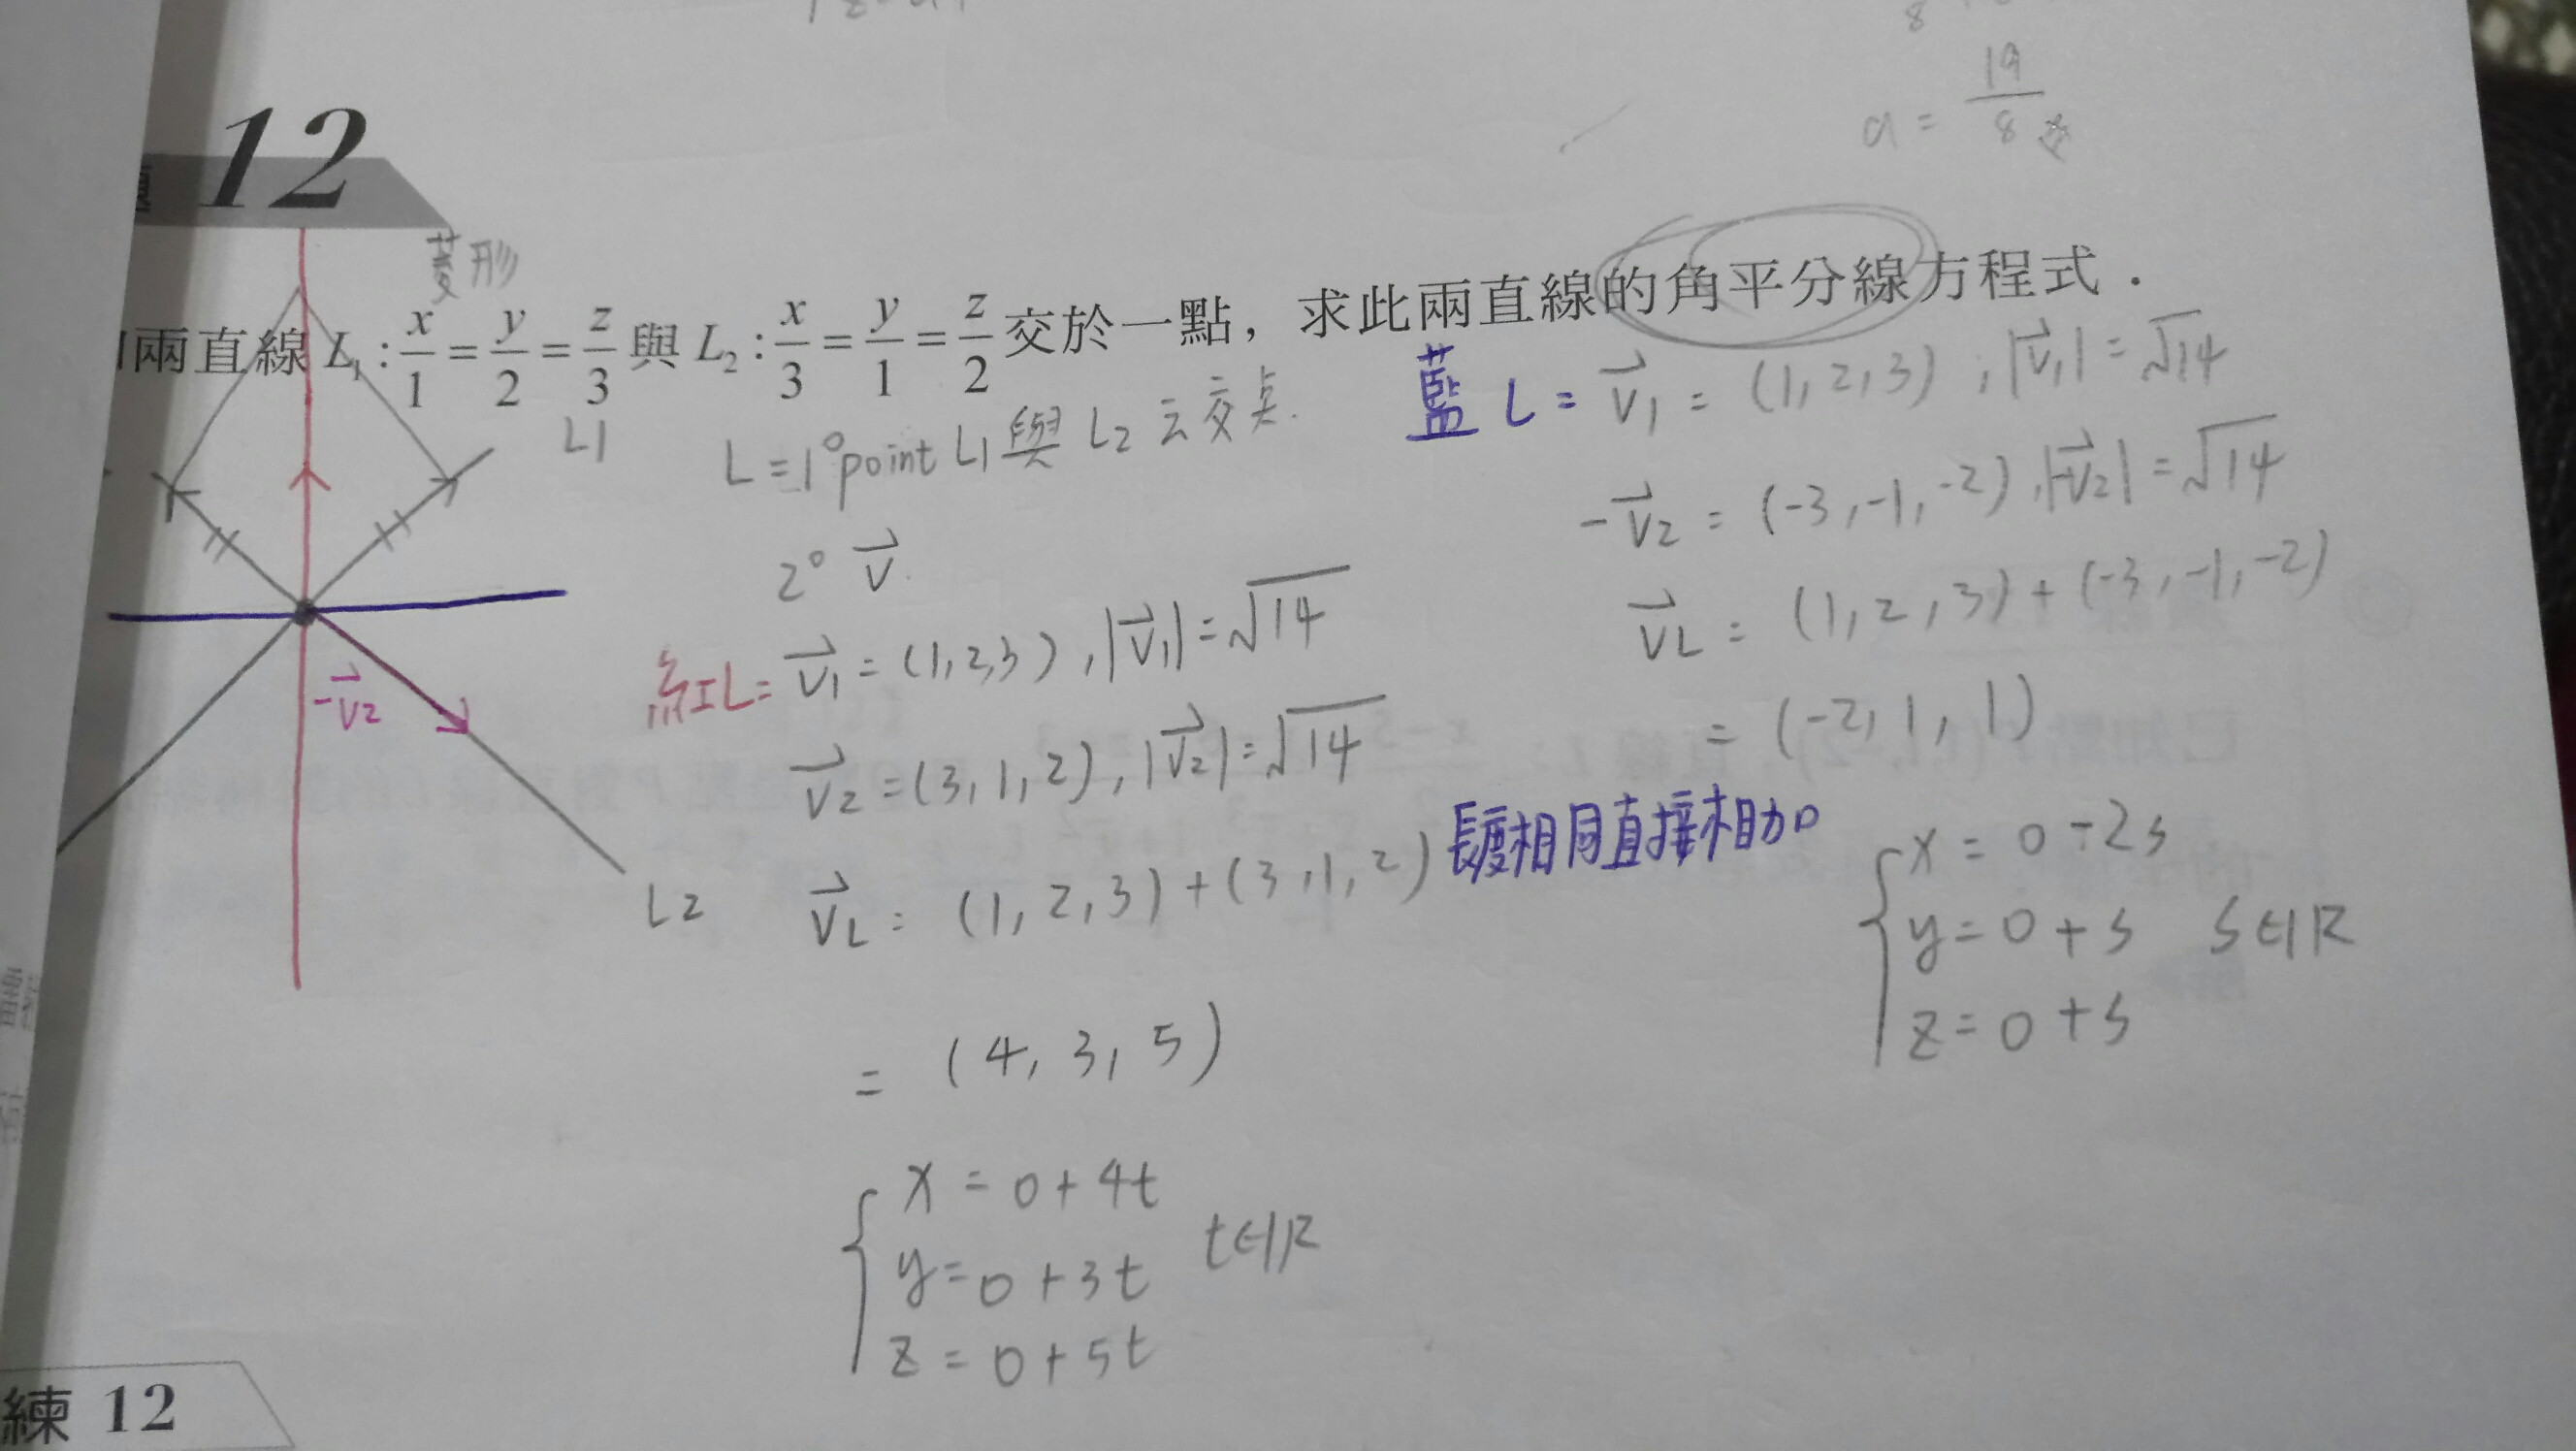 a = 19/8
12
菱形
兩直線 L₁ : x/1 = y/2 = z/3 與 L₂ : x/3 = y/1 = z/2 交於一點，求此兩直線的角平分線方程式．
L1
L = 1° point L1 與 L2 之交点.
2° v⃗
紅L = v⃗1 = (1,2,3) , |v⃗1| = √14
v⃗2 = (3,1,2) , |v⃗2| = √14
v⃗L = (1,2,3) + (3,1,2) 長度相同直接相加
= (4,3,5)
{ x = 0 + 4t
y = 0 + 3t t∈R
z = 0 + 5t
藍 L = v⃗1 = (1,2,3) , |v⃗1| = √14
-v⃗2 = (-3,-1,-2) , |-v⃗2| = √14
v⃗L = (1,2,3) + (-3,-1,-2)
= (-2,1,1)
{ x = 0 - 2s
y = 0 + s s∈R
z = 0 + s
-v⃗2
L2
練 12